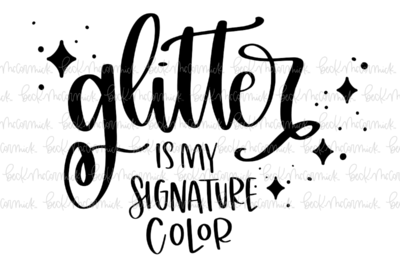 glitter
IS MY
SIGNATURE
COLOR